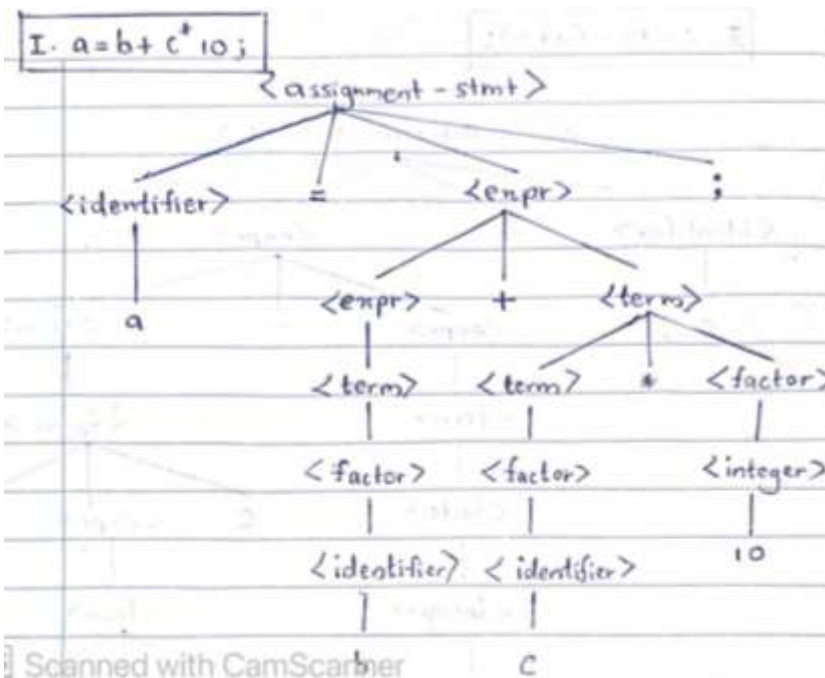 I. a = b + c * 10 ;
<assignment-stmt>
<identifier> = <enpr> ;
a <enpr> + <term>
<term> <term> * <factor>
<factor> <factor> <integer>
<identifier> <identifier> 10
b c
Scanned with CamScanner